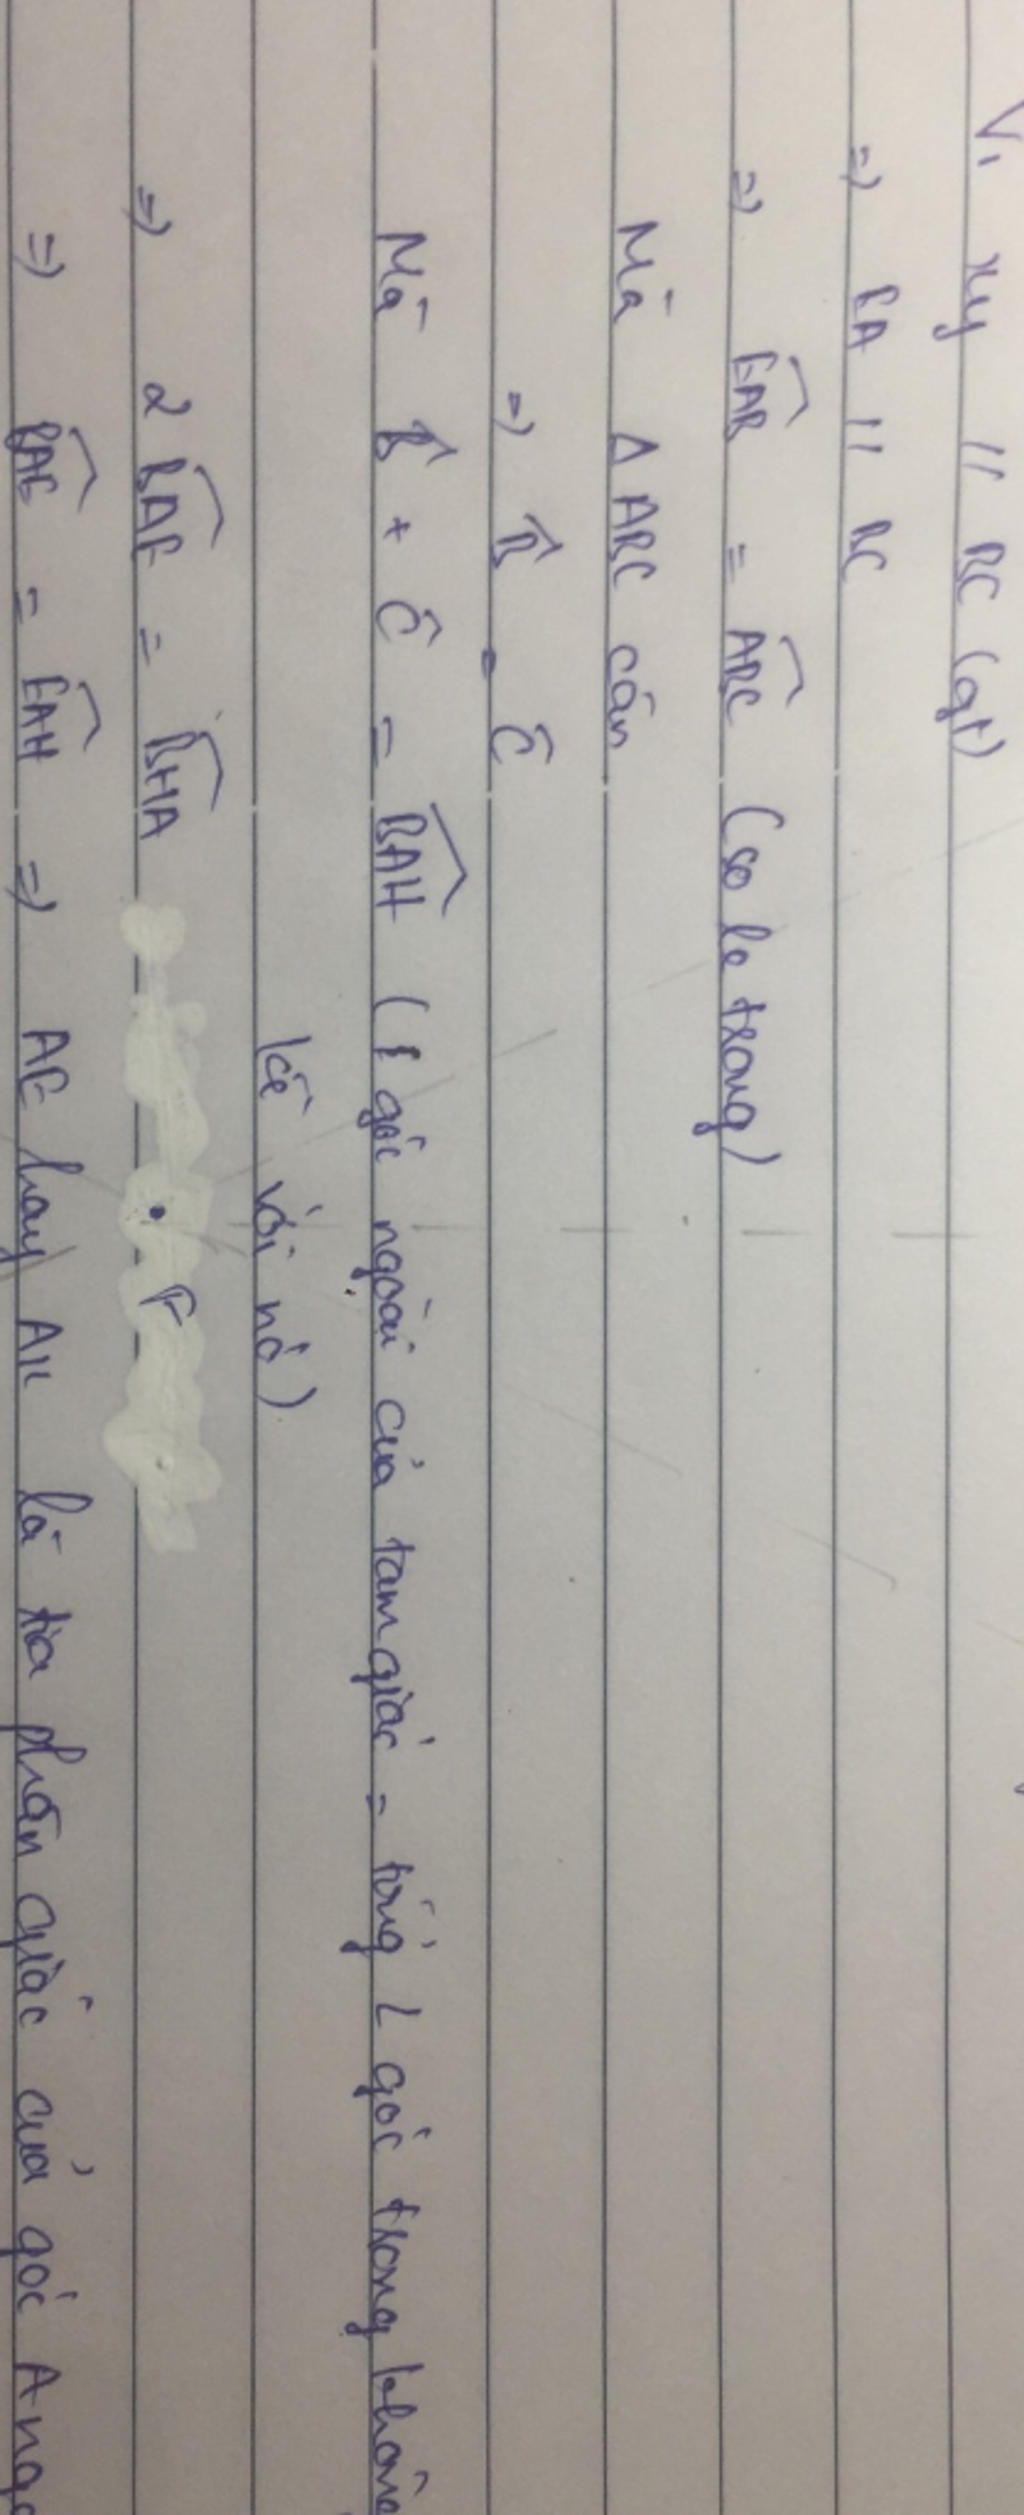 Vì xy // BC (gt)
=> EA // BC
=> EAB = ABC (so le trong)
Mà Δ ABC cân
=> B̂ = Ĉ
Mà B̂ + Ĉ = BAH (1 góc ngoài của tam giác = tổng 2 góc trong không
kề với nó)
=> 2 BAE = BHA F
=> BAE = EAH => AE hay Ax là tia phân giác của góc A